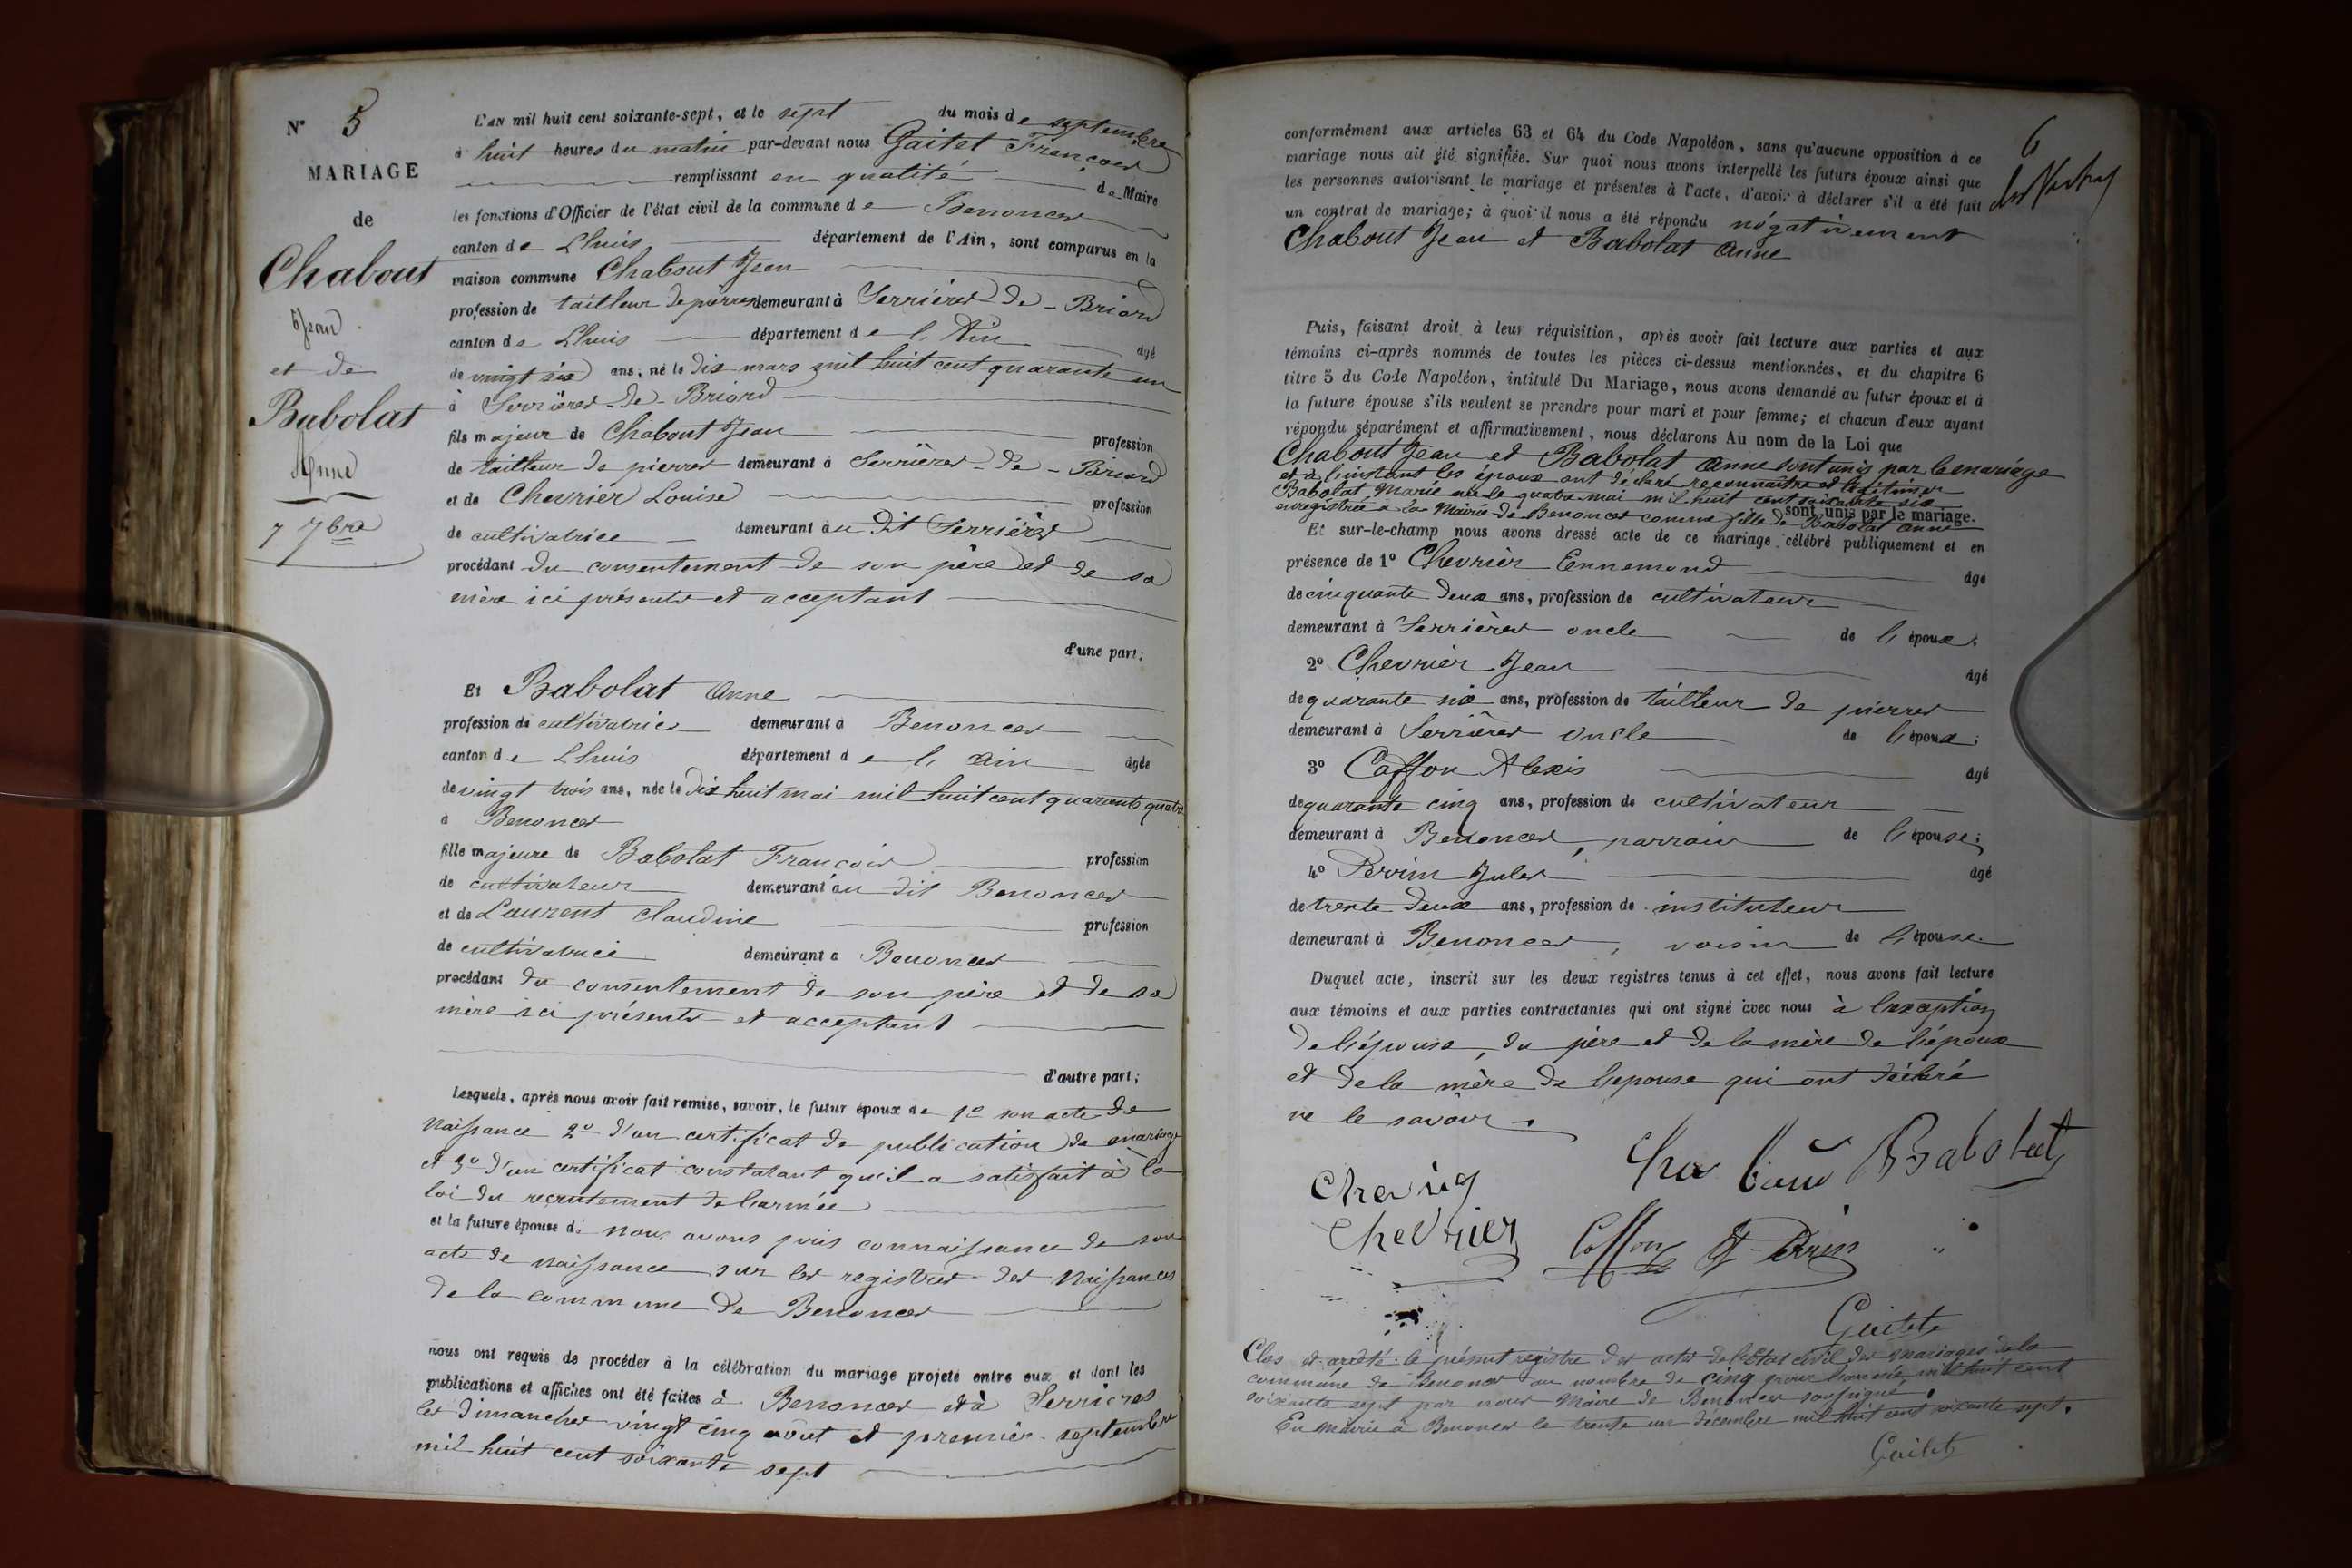 N° 5
MARIAGE
de
Chabout
Jean
et de
Babolat
Anne
7 7bre
L'AN mil huit cent soixante-sept, et le sept du mois de septembre
à huit heures du matin par-devant nous Gaitet François
remplissant en qualité de Maire
les fonctions d'Officier de l'état civil de la commune de Benonces
canton de Lhuis département de l'Ain, sont comparus en la
maison commune Chabout Jean
profession de tailleur de pierres demeurant à Serrières-de-Briord
canton de Lhuis département de l'Ain âgé
de vingt six ans, né le dix mars mil huit cent quarante un
à Serrières-de-Briord
fils majeur de Chabout Jean profession
de tailleur de pierres demeurant à Serrières-de-Briord
et de Chevrier Louise profession
de cultivatrice demeurant au dit Serrières
procédant du consentement de son père et de sa
mère ici présents et acceptant
d'une part;
Et Babolat Anne
profession de cultivatrice demeurant à Benonces
canton de Lhuis département de l'Ain âgée
de vingt trois ans, née le dix huit mai mil huit cent quarante quatre
à Benonces
fille majeure de Babolat François profession
de cultivateur demeurant au dit Benonces
et de Laurent Claudine profession
de cultivatrice demeurant à Benonces
procédant du consentement de son père et de sa
mère ici présents et acceptant
d'autre part;
Lesquels, après nous avoir fait remise, savoir, le futur époux de 1° son acte de
naissance 2° d'un certificat de publication de mariage
et 3° d'un certificat constatant qu'il a satisfait à la
loi du recrutement de l'armée
et la future épouse de nous avons pris connaissance de son
acte de naissance sur les registres des naissances
de la commune de Benonces
nous ont requis de procéder à la célébration du mariage projeté entre eux et dont les
publications et affiches ont été faites à Benonces et à Serrières
les dimanches vingt cinq août et premier septembre
mil huit cent soixante sept
6
conformément aux articles 63 et 64 du Code Napoléon, sans qu'aucune opposition à ce
mariage nous ait été signifiée. Sur quoi nous avons interpellé les futurs époux ainsi que
les personnes autorisant le mariage et présentes à l'acte, d'avoir à déclarer s'il a été fait
un contrat de mariage; à quoi il nous a été répondu négativement
Chabout Jean et Babolat Anne
Puis, faisant droit à leur réquisition, après avoir fait lecture aux parties et aux
témoins ci-après nommés de toutes les pièces ci-dessus mentionnées, et du chapitre 6
titre 5 du Code Napoléon, intitulé Du Mariage, nous avons demandé au futur époux et à
la future épouse s'ils veulent se prendre pour mari et pour femme; et chacun d'eux ayant
répondu séparément et affirmativement, nous déclarons Au nom de la Loi que
Chabout Jean et Babolat Anne sont unis par le mariage
et à l'instant les époux ont déclaré reconnaître et légitimer
Babolat Marie née le quatre mai mil huit cent soixante six
enregistrée à la Mairie de Benonces comme fille de Babolat Anne
sont unis par le mariage.
Et sur-le-champ nous avons dressé acte de ce mariage célébré publiquement et en
présence de 1° Chevrier Ennemond âgé
de cinquante deux ans, profession de cultivateur
demeurant à Serrières oncle de l'époux.
2° Chevrier Jean âgé
de quarante six ans, profession de tailleur de pierres
demeurant à Serrières oncle de l'époux;
3° Caffon Alexis âgé
de quarante cinq ans, profession de cultivateur
demeurant à Benonces, parrain de l'épouse;
4° Perrin Jules âgé
de trente deux ans, profession de instituteur
demeurant à Benonces, voisin de l'épouse.
Duquel acte, inscrit sur les deux registres tenus à cet effet, nous avons fait lecture
aux témoins et aux parties contractantes qui ont signé avec nous à l'exception
de l'épouse, du père et de la mère de l'époux
et de la mère de l'épouse qui ont déclaré
ne le savoir.
Babolat
Chevrier
Caffon J Perrin
Gaitet
Clos et arrêté le présent registre des actes de l'Etat civil des mariages de la
commune de Benonces au nombre de cinq pour l'année mil huit cent
soixante sept par nous Maire de Benonces soussigné.
En Mairie à Benonces le trente un décembre mil huit cent soixante sept.
Gaitet